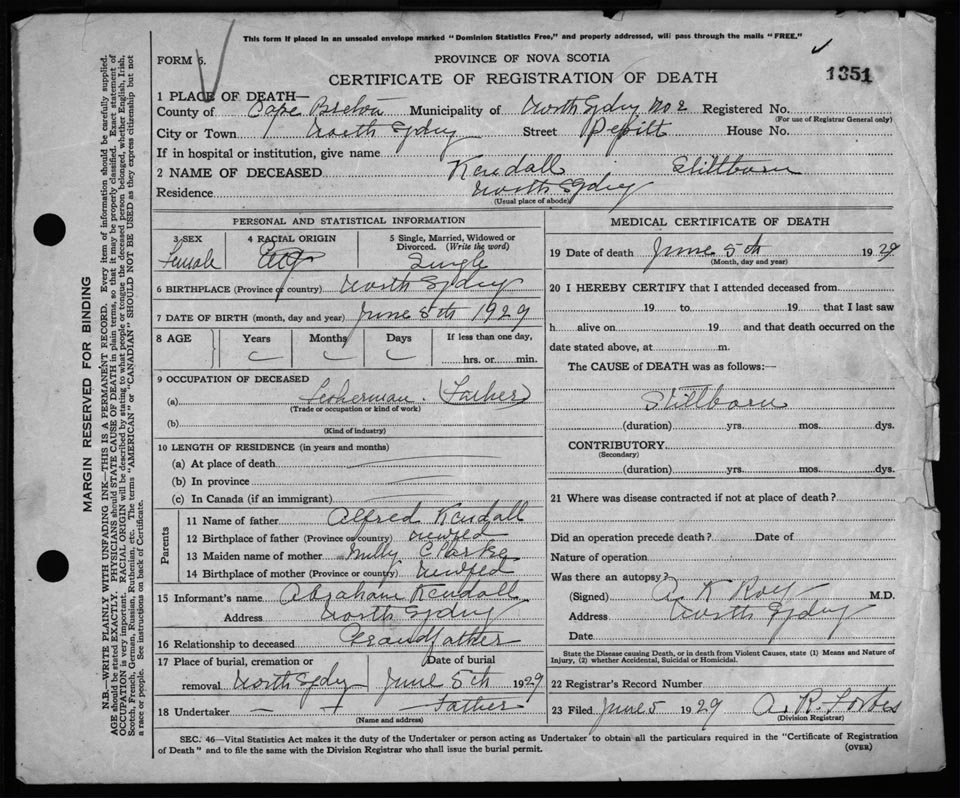 This form if placed in an unsealed envelope marked "Dominion Statistics Free," and properly addressed, will pass through the mails "FREE."
FORM 6.
PROVINCE OF NOVA SCOTIA
CERTIFICATE OF REGISTRATION OF DEATH
1351
1 PLACE OF DEATH—
County of Cape Breton Municipality of North Sydney No 2 Registered No.
(For use of Registrar General only)
City or Town North Sydney Street House No.
If in hospital or institution, give name
2 NAME OF DECEASED Kendall Stillborn
Residence North Sydney
(Usual place of abode)
PERSONAL AND STATISTICAL INFORMATION
3 SEX 4 RACIAL ORIGIN 5 Single, Married, Widowed or Divorced. (Write the word)
Female Single
6 BIRTHPLACE (Province or country) North Sydney
7 DATE OF BIRTH (month, day and year) June 5th 1929
8 AGE Years Months Days If less than one day,
hrs. or min.
9 OCCUPATION OF DECEASED
(a) Fisherman. (Father)
(Trade or occupation or kind of work)
(b)
(Kind of industry)
10 LENGTH OF RESIDENCE (in years and months)
(a) At place of death
(b) In province
(c) In Canada (if an immigrant)
Parents
11 Name of father Alfred Kendall
12 Birthplace of father (Province or country) Newfld
13 Maiden name of mother Milly Clarke
14 Birthplace of mother (Province or country) Newfld
15 Informant's name Abraham Kendall
Address North Sydney
16 Relationship to deceased Grandfather
17 Place of burial, cremation or removal North Sydney Date of burial June 5th 1929
18 Undertaker Father
(Name and address)
MEDICAL CERTIFICATE OF DEATH
19 Date of death June 5th 1929
(Month, day and year)
20 I HEREBY CERTIFY that I attended deceased from
19 to 19 that I last saw
h alive on 19 and that death occurred on the
date stated above, at m.
The CAUSE of DEATH was as follows:—
Stillborn
(duration) yrs. mos. dys.
CONTRIBUTORY
(Secondary)
(duration) yrs. mos. dys.
21 Where was disease contracted if not at place of death?
Did an operation precede death? Date of
Nature of operation
Was there an autopsy?
(Signed) A K Roy M.D.
Address North Sydney
Date
State the Disease causing Death, or in death from Violent Causes, state (1) Means and Nature of
Injury, (2) whether Accidental, Suicidal or Homicidal.
22 Registrar's Record Number
23 Filed June 5 1929 A. R. Forbes
(Division Registrar)
SEC. 46—Vital Statistics Act makes it the duty of the Undertaker or person acting as Undertaker to obtain all the particulars required in the "Certificate of Registration
of Death" and to file the same with the Division Registrar who shall issue the burial permit.
(OVER)
MARGIN RESERVED FOR BINDING
N.B.—WRITE PLAINLY WITH UNFADING INK—THIS IS A PERMANENT RECORD. Every item of information should be carefully supplied.
AGE should be stated EXACTLY. PHYSICIANS should STATE CAUSE OF DEATH in plain terms, so that it may be properly classified. Exact statement of
OCCUPATION is very important. RACIAL ORIGIN will be described by stating to what people or tongue the deceased person belonged, whether English, Irish,
Scotch, French, German, Russian, Ruthenian, etc. The terms "AMERICAN" or "CANADIAN" SHOULD NOT BE USED as they express citizenship but not
a race or people. See instructions on back of Certificate.